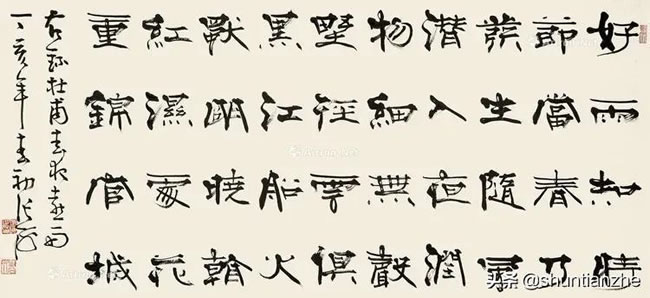 好雨知時
節當春乃
發生隨風
潛入夜潤
物細無聲
野徑雲俱
黑江船火
獨明曉看
紅濕處花
重錦官城
右錄杜甫春夜喜雨
丁亥年春初
头条 @shuntianzhe